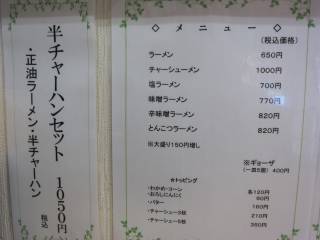 半チャーハンセット 1050円
・正油ラーメン・半チャーハン 税込
◇ メニュー ◇
(税込価格)
ラーメン 650円
チャーシューメン 1000円
塩ラーメン 700円
味噌ラーメン 770円
辛味噌ラーメン 820円
とんこつラーメン 820円
※大盛り150円増し
※ギョーザ
(一皿5個) 400円
★トッピング
・わかめ・コーン 各120円
・おろしにんにく 60円
・バター 160円
・チャーシュー3枚 210円
・チャーシュー5枚 350円